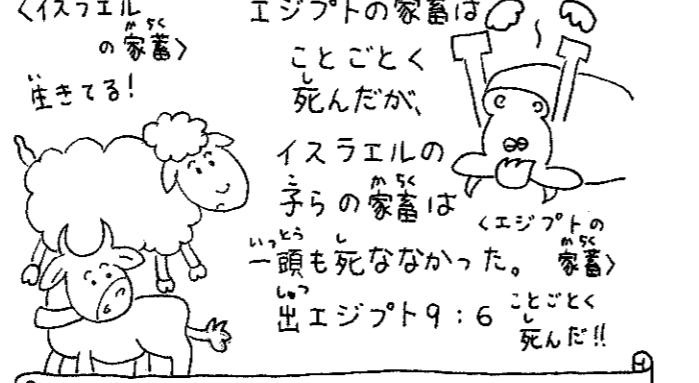 〈イスラエル
の家畜〉
生きてる!
エジプトの家畜は
ことごとく
死んだが、
イスラエルの
子らの家畜は
一頭も死ななかった。
出エジプト9:6
〈エジプトの
家畜〉
ことごとく
死んだ!!